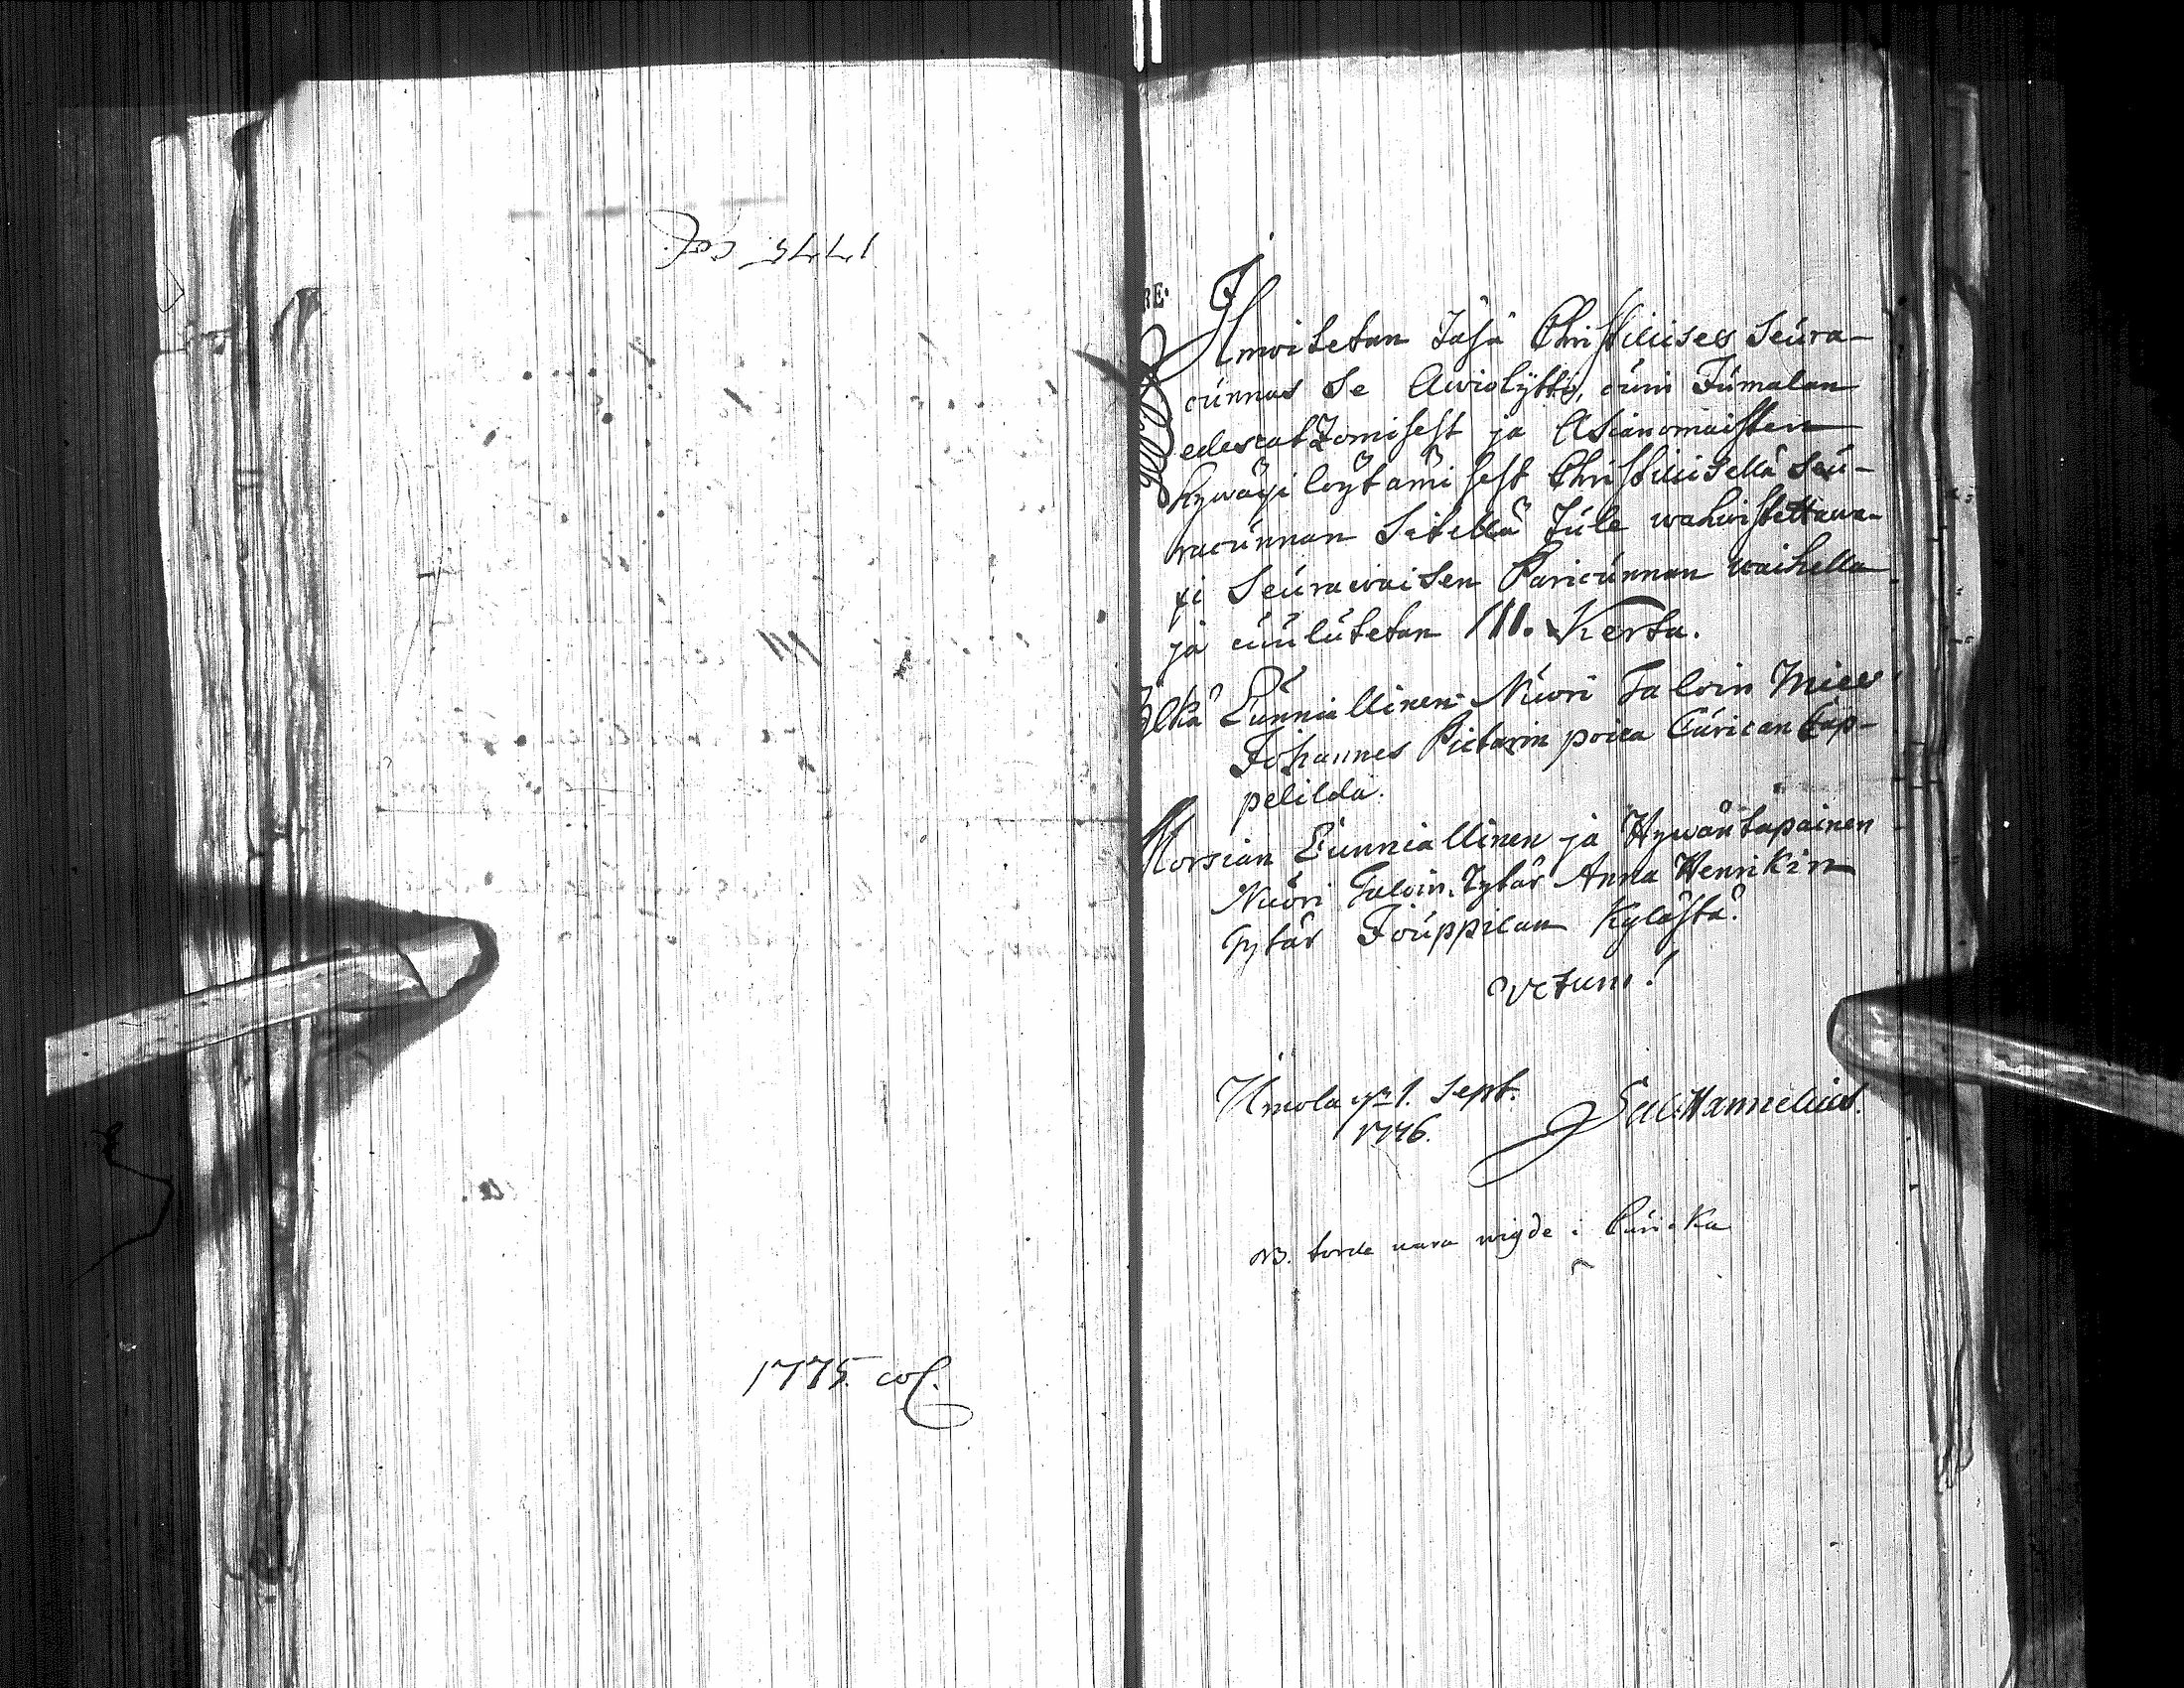 1775 col.
1775. col.
RE.
Ilmoitetan Täsä Christilises Seura-
cunnas Se Awioliitto, cuin Jumalan
edescatzomisest ja Asianomaisten
hywäxi löytämisest Christilisellä Seu-
racunnan Sitellä Tule wahwistettawa-
xi Seurawaisen Paricunnan waihella
ja cuulutetan III. Kerta.
Ylkä Cunniallinen Nuori Taloin Mies
Johannes Pietarin poica Cärican Cap-
pelilda.
Morsian Cunniallinen ja Hywäntapainen
Nuori Taloin Tytär Anna Henrikin
Tytär Jouppilan Kylästä.
Votum!
Ilmola 1. Sept.
1776.
Hannelius.
NB. torde vara wigde i